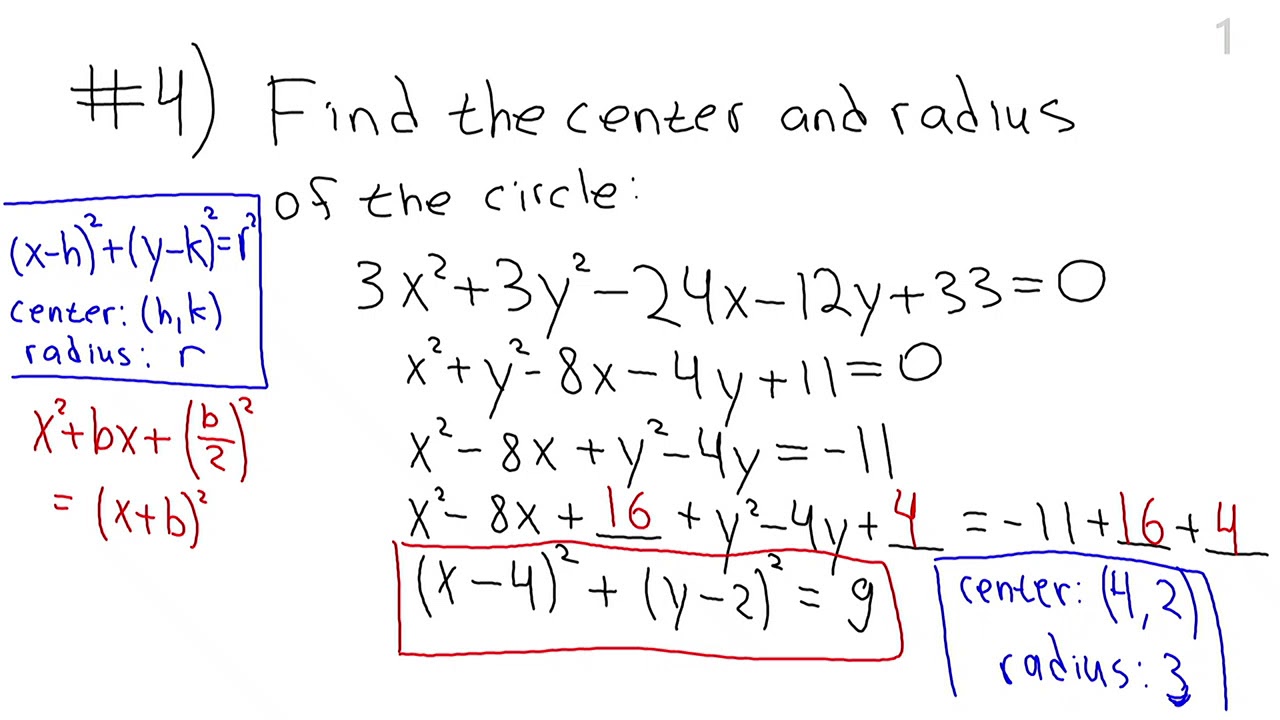 1
#4) Find the center and radius
of the circle:
(x-h)²+(y-k)²=r²
center: (h,k)
radius: r
x²+bx+(b/2)²
= (x+b)²
3x²+3y²-24x-12y+33=0
x²+y²-8x-4y+11=0
x²-8x+y²-4y=-11
x²-8x+16+y²-4y+4=-11+16+4
(x-4)²+(y-2)²=9
center: (4,2)
radius: 3